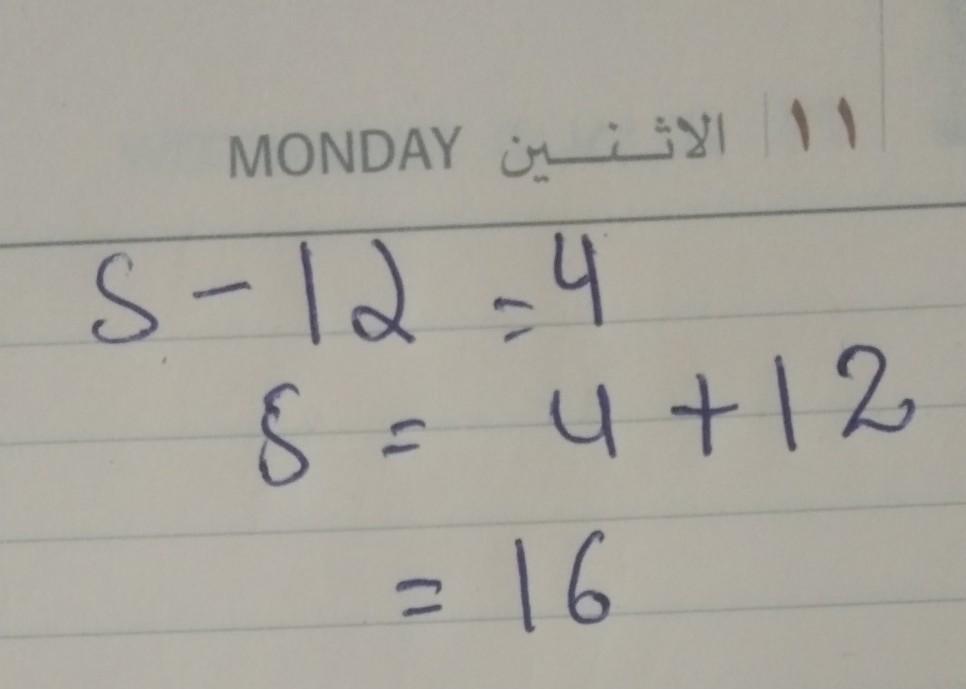 MONDAY الاثنين ١١
S - 12 = 4
S = 4 + 12
= 16